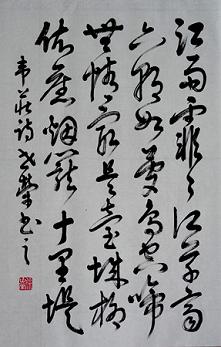 江雨霏々江草齊
六朝如夢鳥空啼
無情最是臺城柳
依舊烟籠十里堤
韋莊詩 書之